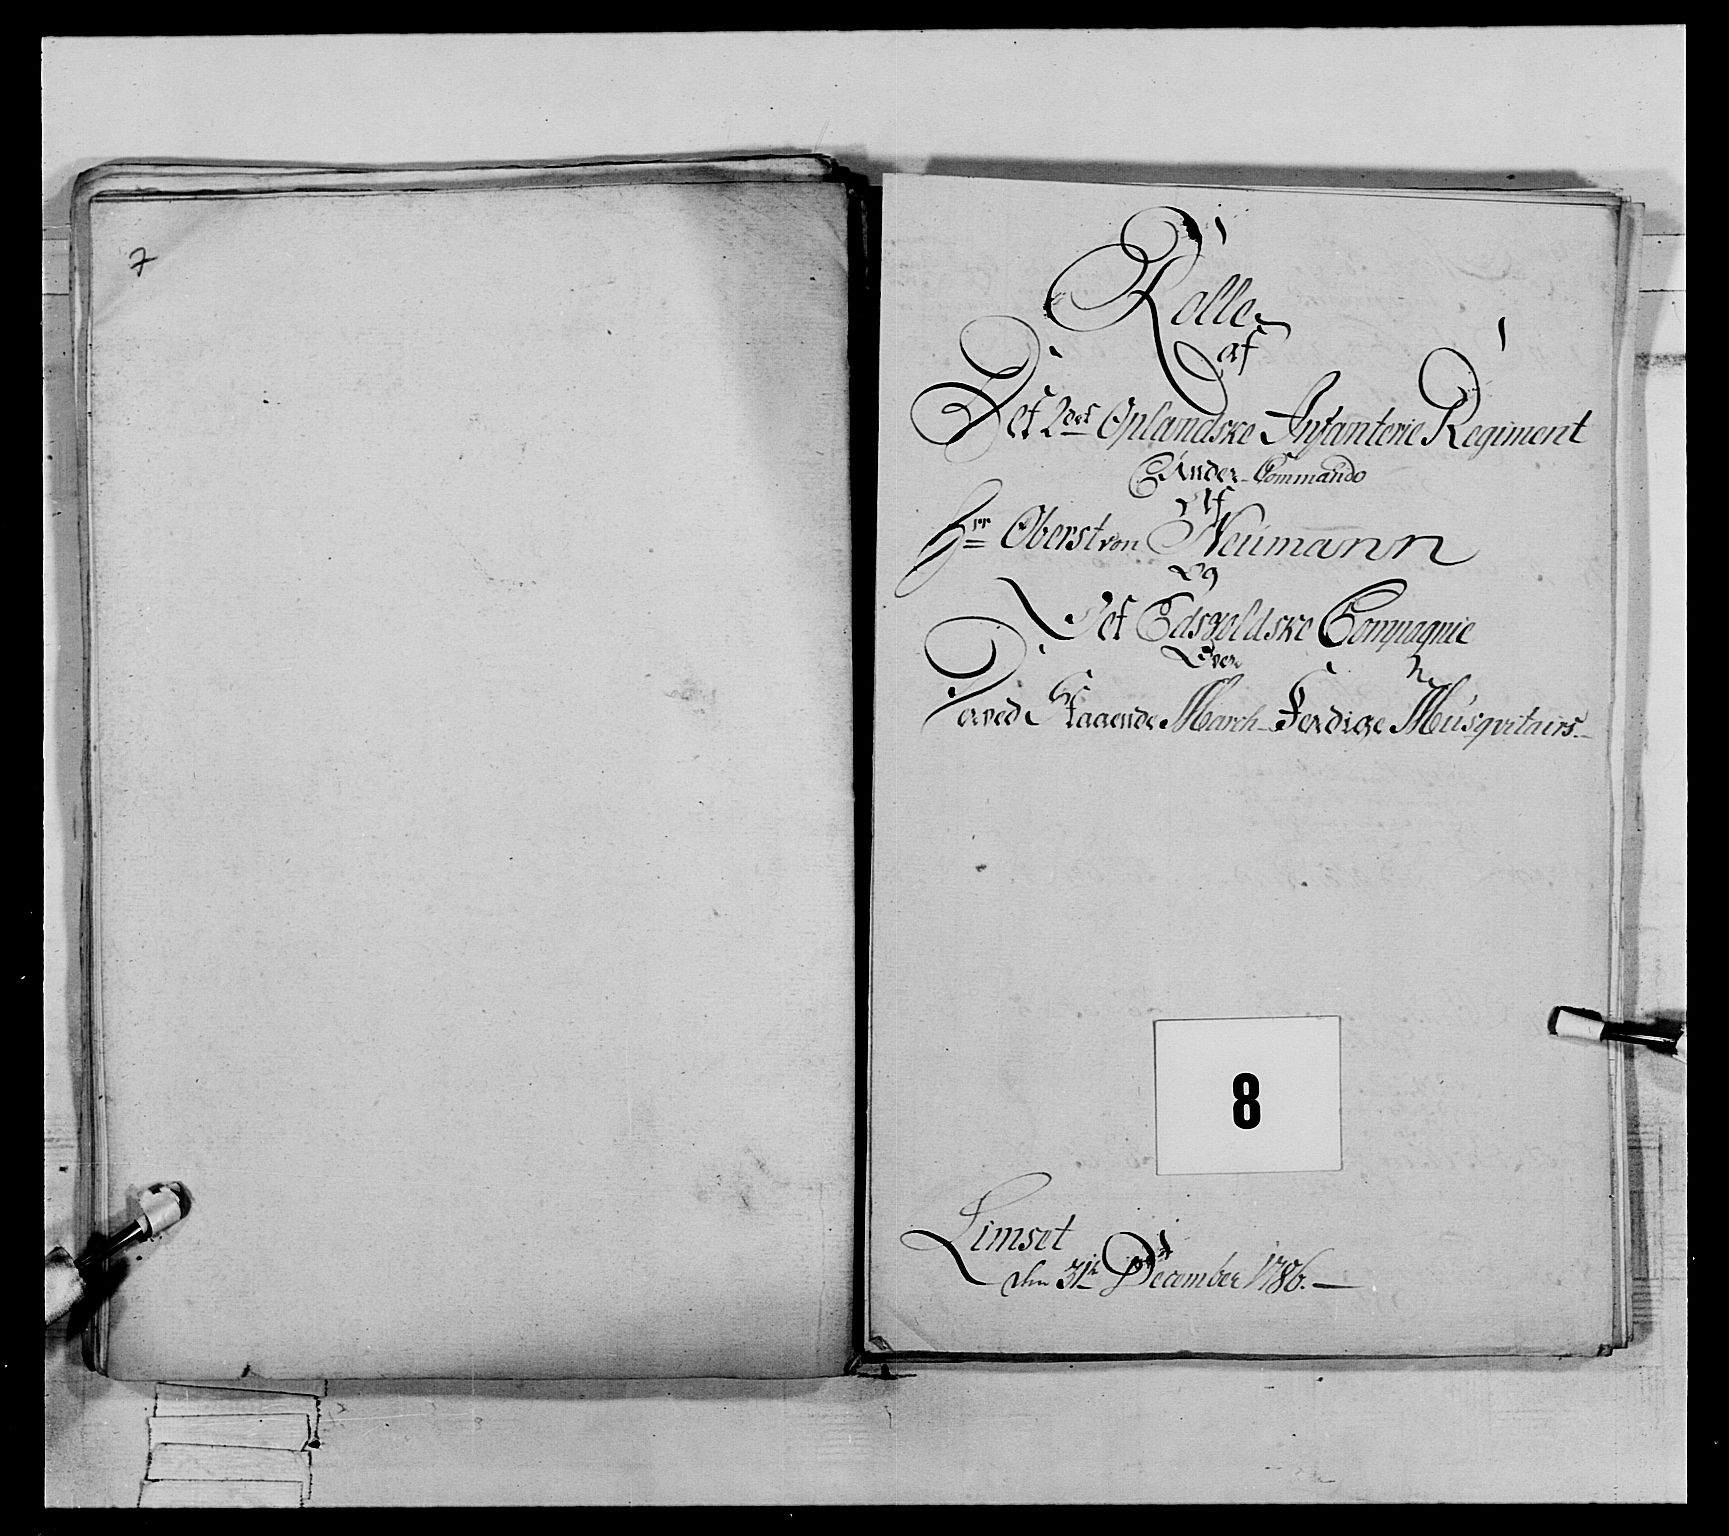 7
Rolle
af
Det 2det Oplandske Infanterie Regiment
Under Commando
Af
Hrr Oberst von Neumann
Og
Det Edsvoldske Compagnie
Over
Derved Staaende March-Ferdige Musqvitairs
8
Limset
den 31te December 1786.